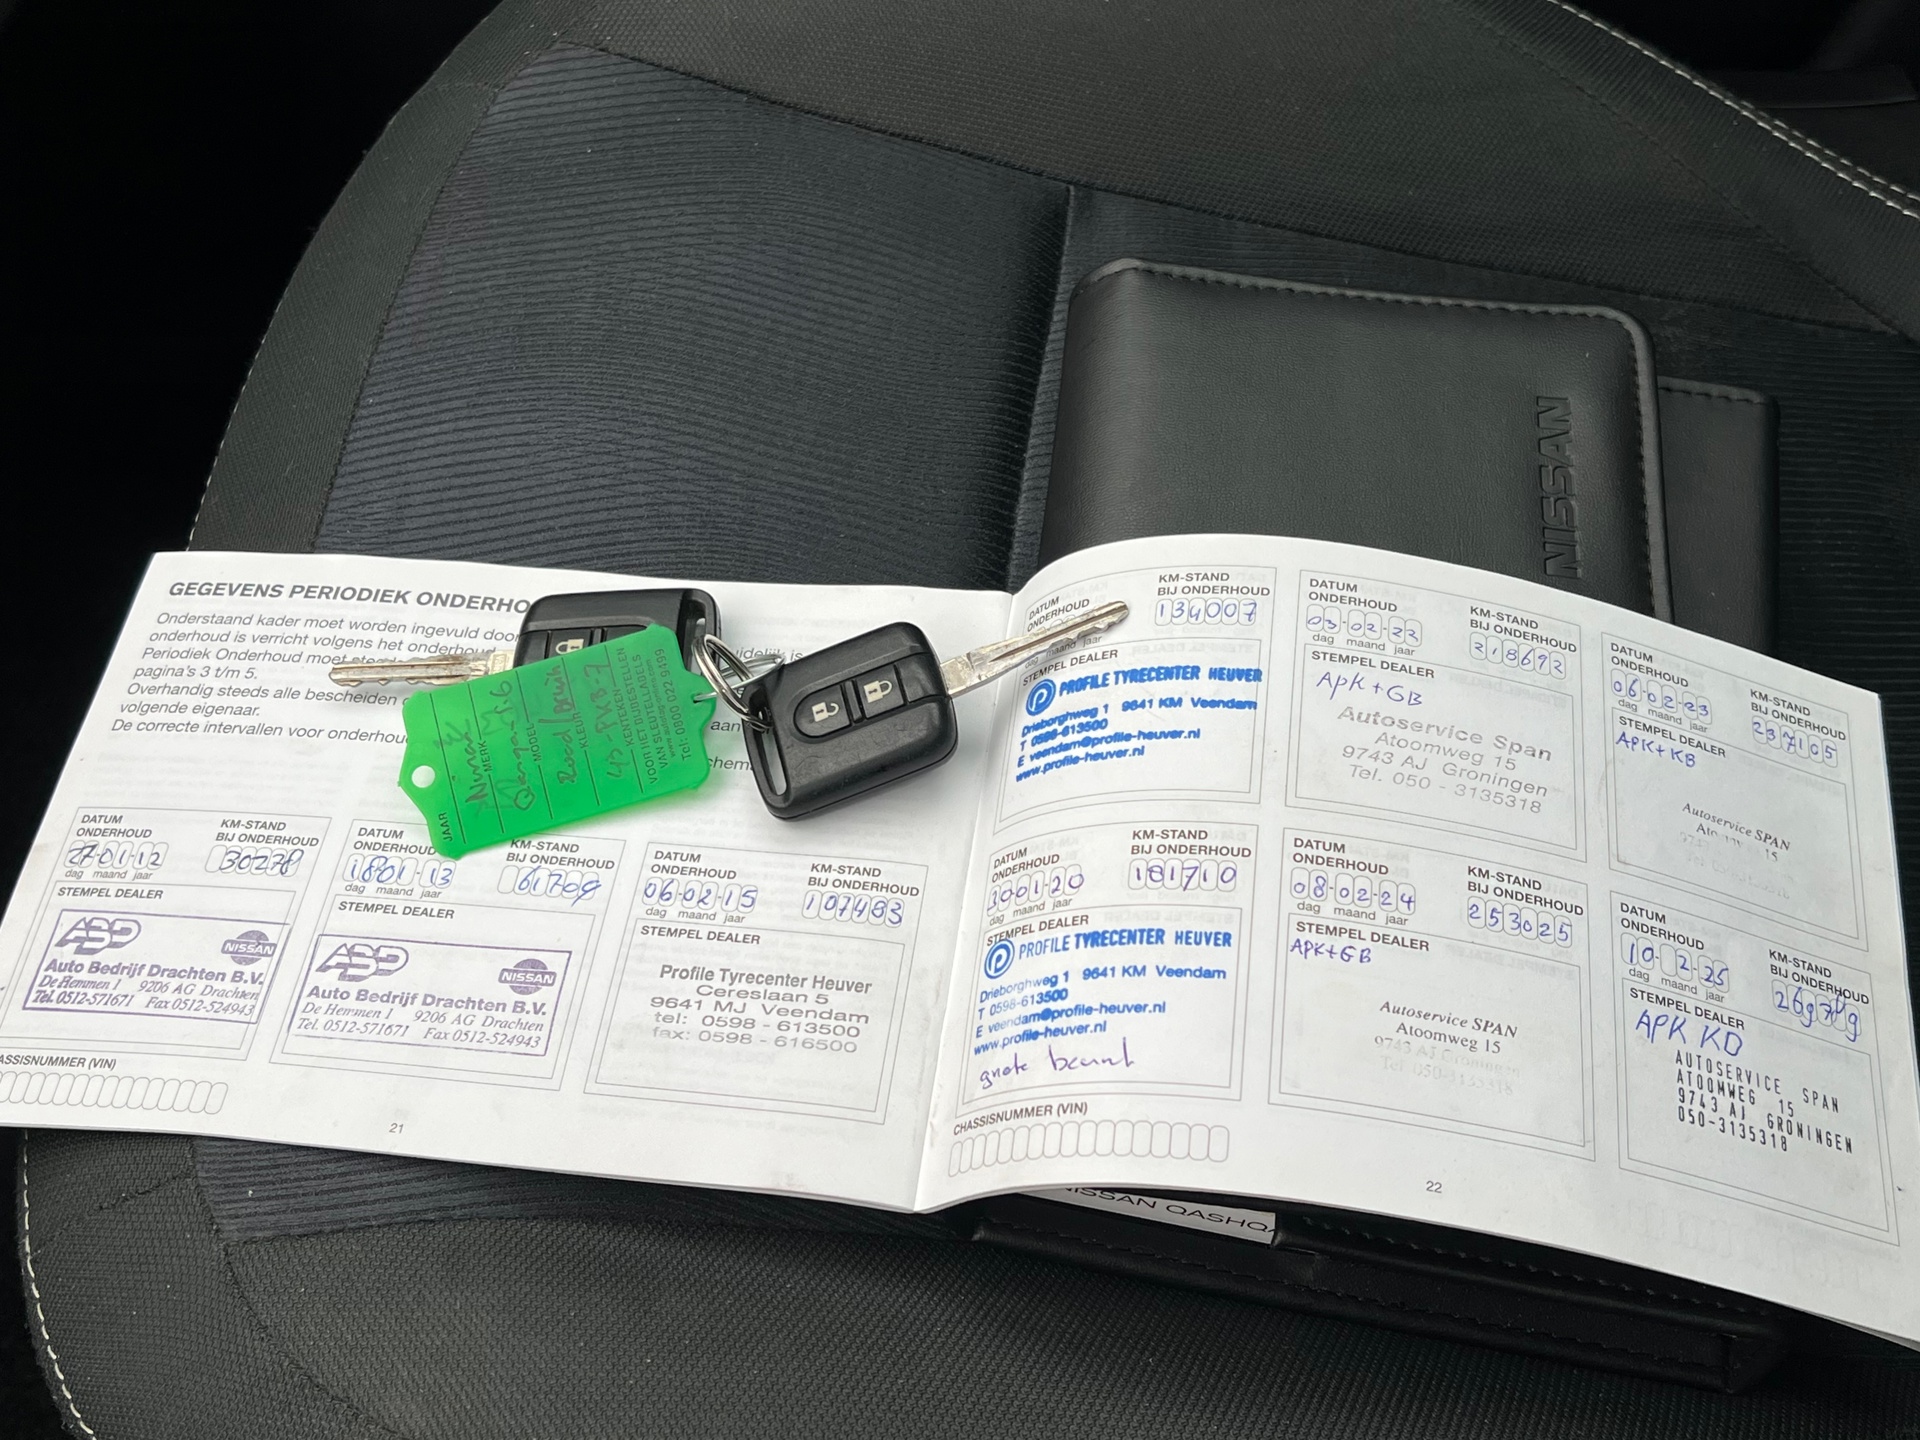 NISSAN
GEGEVENS PERIODIEK ONDERHO
Onderstaand kader moet worden ingevuld door
onderhoud is verricht volgens het onderhoud
Periodiek Onderhoud moet
pagina's 3 t/m 5.
Overhandig steeds alle bescheiden
volgende eigenaar.
De correcte intervallen voor onderhou
JAAR
Nissan
MERK
Qasqai 1.6
MODEL
Rood/bruin
KLEUR
42-PKB-7
KENTEKEN
VOOR HET BIJBESTELLEN
VAN SLEUTELLABELS
Tel.: 0800 022 9499
DATUM
ONDERHOUD
27-01-12
dag maand jaar
KM-STAND
BIJ ONDERHOUD
30278
STEMPEL DEALER
ABD
NISSAN
Auto Bedrijf Drachten B.V.
De Hemmen 1 9206 AG Drachten
Tel. 0512-571671 Fax 0512-524943
DATUM
ONDERHOUD
18-01-13
dag maand jaar
KM-STAND
BIJ ONDERHOUD
61709
STEMPEL DEALER
ABD
NISSAN
Auto Bedrijf Drachten B.V.
De Hemmen 1 9206 AG Drachten
Tel. 0512-571671 Fax 0512-524943
DATUM
ONDERHOUD
06-02-15
dag maand jaar
KM-STAND
BIJ ONDERHOUD
107483
STEMPEL DEALER
Profile Tyrecenter Heuver
Cereslaan 5
9641 MJ Veendam
tel: 0598 - 613500
fax: 0598 - 616500
ASSISNUMMER (VIN)
21
DATUM
ONDERHOUD
maand jaar
KM-STAND
BIJ ONDERHOUD
134007
STEMPEL DEALER
PROFILE TYRECENTER HEUVER
Drieborghweg 1 9641 KM Veendam
T 0598-613500
E veendam@profile-heuver.nl
www.profile-heuver.nl
DATUM
ONDERHOUD
03-02-22
dag maand jaar
KM-STAND
BIJ ONDERHOUD
218692
STEMPEL DEALER
APK+GB
Autoservice Span
Atoomweg 15
9743 AJ Groningen
Tel. 050 - 3135318
DATUM
ONDERHOUD
06-02-23
dag maand jaar
KM-STAND
BIJ ONDERHOUD
237105
STEMPEL DEALER
APK+KB
Autoservice SPAN
15
DATUM
ONDERHOUD
30-01-20
dag maand jaar
KM-STAND
BIJ ONDERHOUD
181710
STEMPEL DEALER
PROFILE TYRECENTER HEUVER
Drieborghweg 1 9641 KM Veendam
T 0598-613500
E veendam@profile-heuver.nl
www.profile-heuver.nl
grote beurt
DATUM
ONDERHOUD
08-02-24
dag maand jaar
KM-STAND
BIJ ONDERHOUD
253025
STEMPEL DEALER
APK+GB
Autoservice SPAN
Atoomweg 15
9743 AJ Groningen
Tel 050-3135318
DATUM
ONDERHOUD
10-2-25
dag maand jaar
KM-STAND
BIJ ONDERHOUD
STEMPEL DEALER
APK KD
AUTOSERVICE SPAN
ATOOMWEG 15
9743 AJ GRONINGEN
050-3135318
CHASSISNUMMER (VIN)
22
NISSAN QASHQA